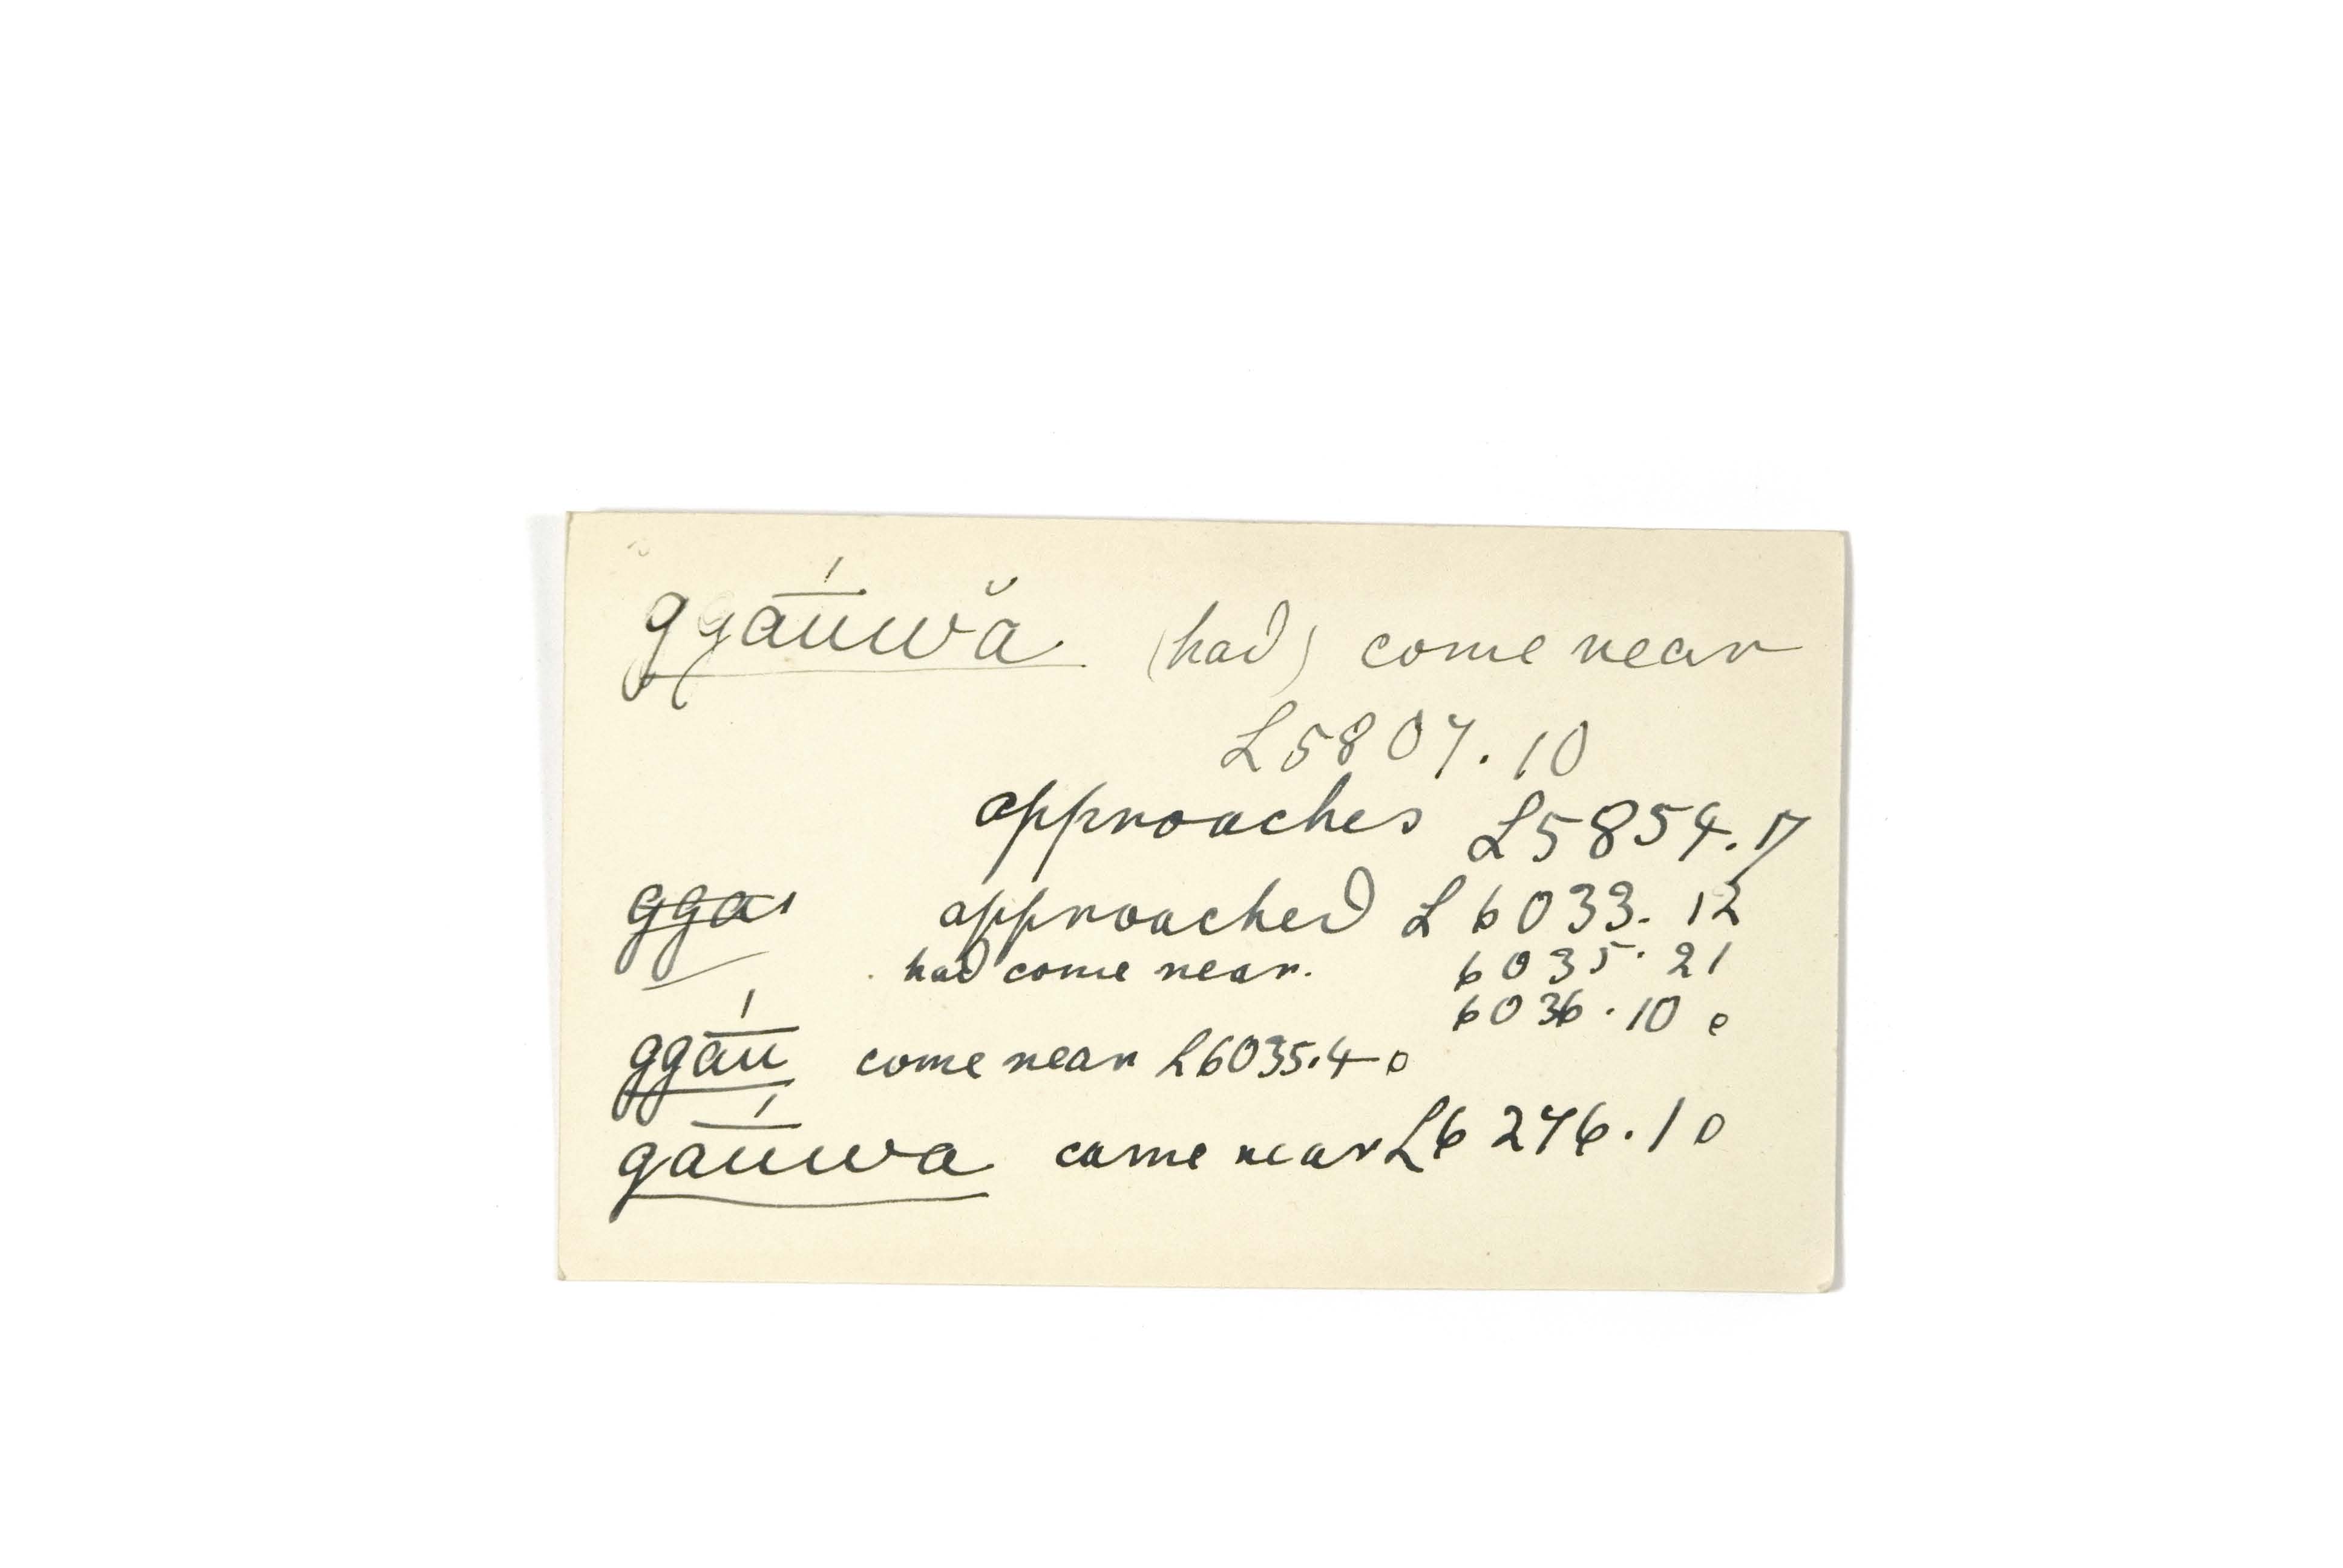 ggā́uwă (had) come near
L5807.10
approaches L5854.17
gga approached L6033.12
had come near. 6035.21
6036.10 e
ggā́u come near L6035.4 o
gā́uwa came near L6246.10